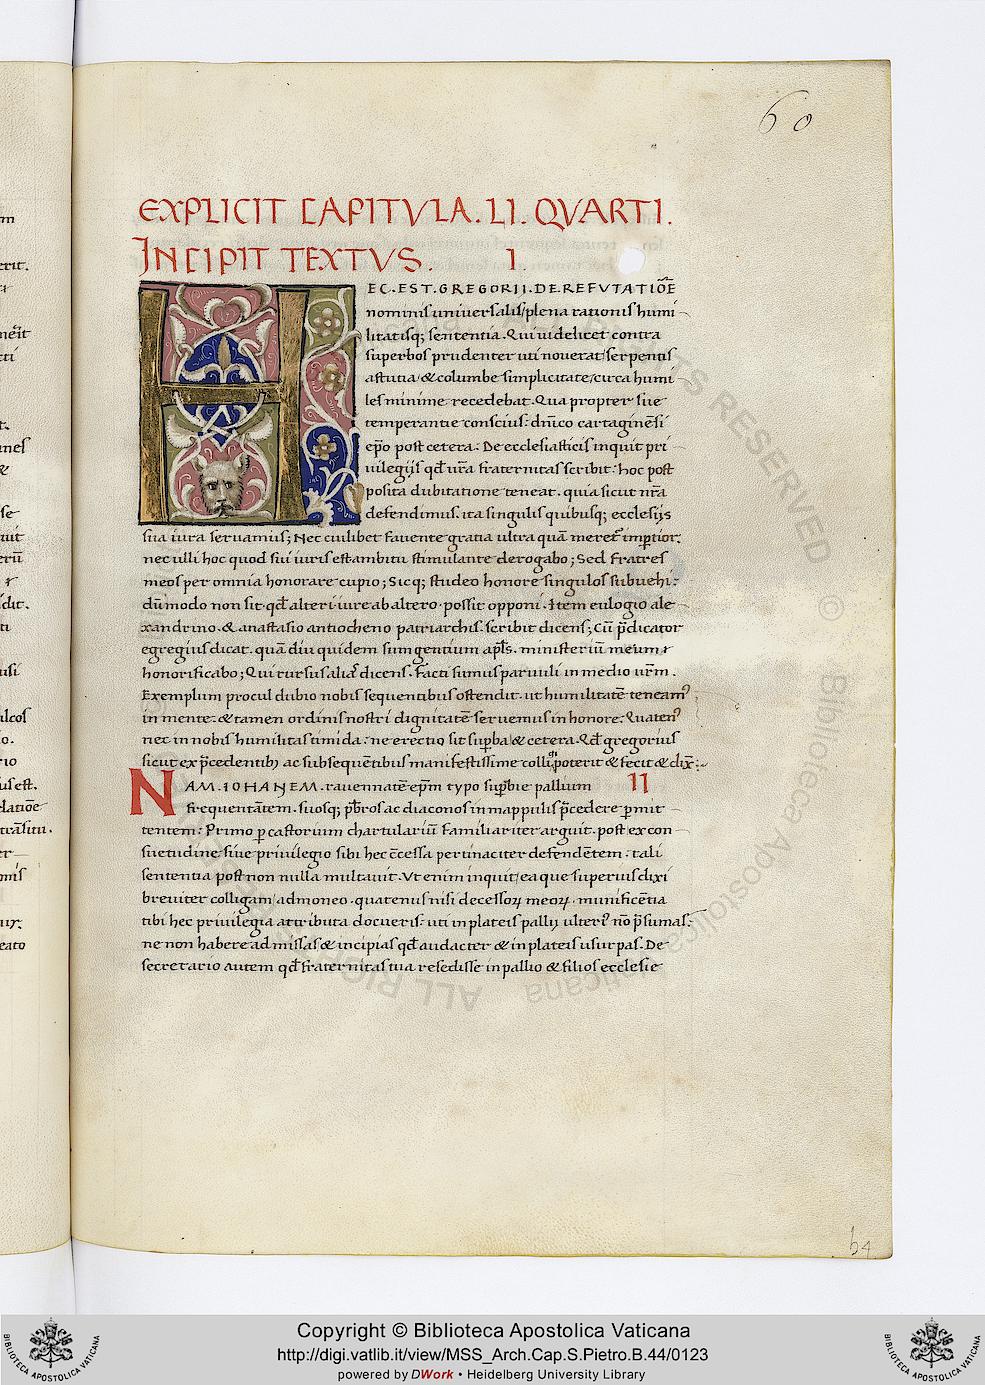 60
EXPLICIT CAPITVLA. LI. QVARTI.
INCIPIT TEXTVS. I.
HEC. EST. GREGORII. DE. REFVTATIŌE
nominis uniuersalis/plena rationis humi-
litatisq; sententia. Qui uidelicet contra
superbos prudenter uti nouerat/serpentis
astutia/& columbe simplicitate/circa humi-
les minime recedebat. Qua propter siue
temperantie conscius: dn̄ico cartaginēsi
ep̄o post cetera: De ecclesiasticis inquit pri-
uilegijs qđ ur̄a fraternitas scribit: hoc post
posita dubitatione teneat. quia sicut nr̄a
defendimus. ita singulis quibusq; ecclesijs
sua iura seruamus; Nec cuilibet fauente gratia ultra quā meret᷑ imptior:
nec ulli hoc quod sui iuris est ambitu stimulante derogabo; Sed fratres
meos per omnia honorare cupio; Sicq; studeo honore singulos subuehi:
dūmodo non sit. qđ alteri iure ab altero. possit opponi. Item eulogio ale-
xandrino. & anastasio antiocheno patriarchis. scribit dicens; Cū p̄dicator
egregius dicat. quā diu quidem sum gentium apl̄s. ministeriū meum
honorificabo; Qui rursus alias dicens. Facti sumus paruuli in medio ur̄m.
Exemplum procul dubio nobis sequentibus ostendit. ut humilitatē teneamꝰ
in mente: & tamen ordinis nostri dignitatē seruemus in honore: Quatenꝰ
nec in nobis humilitas timida: ne erectio sit supba & cetera. Qđ gregorius
sicut ex p̄cedentibꝫ ac subsequētibus manifestissime colligi poterit & fecit & dix̄:
NAM. IOHANEM. rauennatē ep̄m typo supbie pallium II
frequentātem. suosq; pb̄ros ac diaconos in mappulis p̄cedere pmit-
tentem: Primo p castorium chartulariū familiariter arguit. post ex con-
suetudine siue priuilegio sibi hec c̄cessa pertinaciter defendētem: tali
sententia post non nulla multauit. Vt enim inquit/ea que superius dixi
breuiter colligam/admoneo. quatenus nisi decessoꝝ meoꝝ. munificētia
tibi hec priuilegia attributa docueris: uti in plateis pallij ulteriꝰ nō p̄sumas:
ne non habere ad missas & incipias qđ audacter & in plateis usurpas. De
secretario autem qđ fraternitas tua resedisse in pallio & filios ecclesie
64
Copyright © Biblioteca Apostolica Vaticana
http://digi.vatlib.it/view/MSS_Arch.Cap.S.Pietro.B.44/0123
powered by DWork • Heidelberg University Library